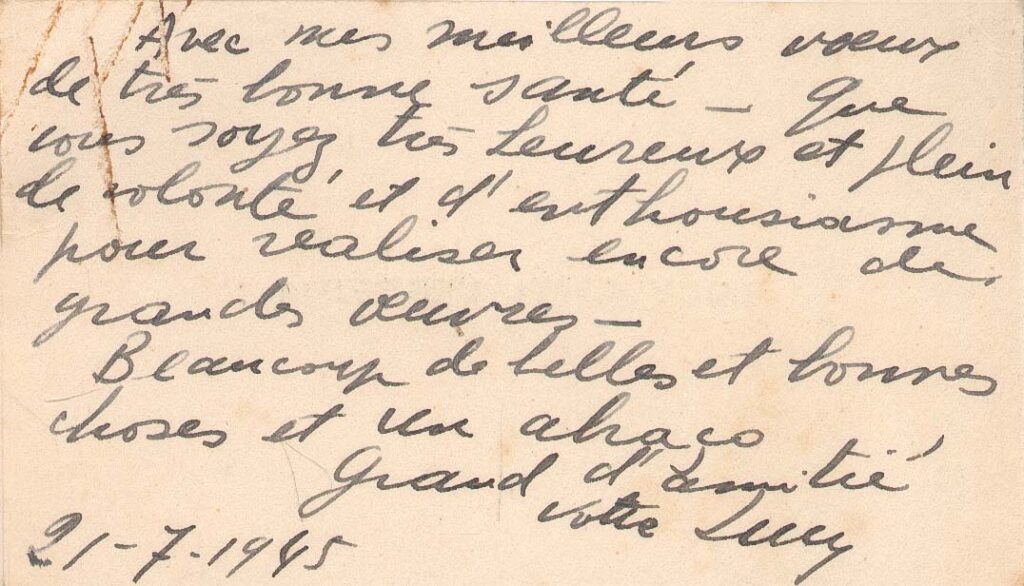 Avec mes meilleurs vœux
de très bonne santé – que
vous soyez très heureux et plein
de volonté et d'enthousiasme
pour realiser encore de
grandes œuvres –
Beaucoup de belles et bonnes
choses et un abraço
Grand d'amitié
Votre Lucy
21-7-1945